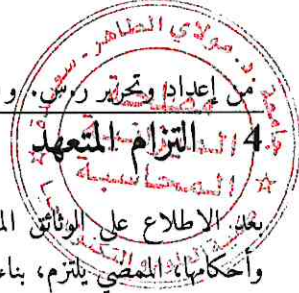 جامعة د. مولاي الطاهر - سعيدة
من إعداد وتحرير ر.س. و
4 التزام المتعهد
بعد الاطلاع على الوثائق
وأحكامها، الممضي يلتزم، بناء